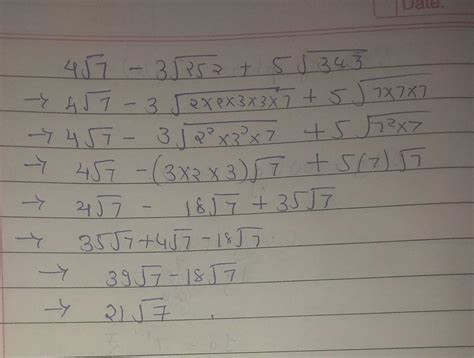 Date.
4√7 - 3√252 + 5√343
→ 4√7 - 3√2×2×3×3×7 + 5√7×7×7
→ 4√7 - 3√2²×3²×7 + 5√7²×7
→ 4√7 - (3×2×3)√7 + 5(7)√7
→ 4√7 - 18√7 + 35√7
→ 35√7+4√7-18√7
→ 39√7-18√7
→ 21√7.